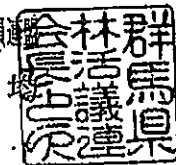 群馬県
林活議連
会長之印